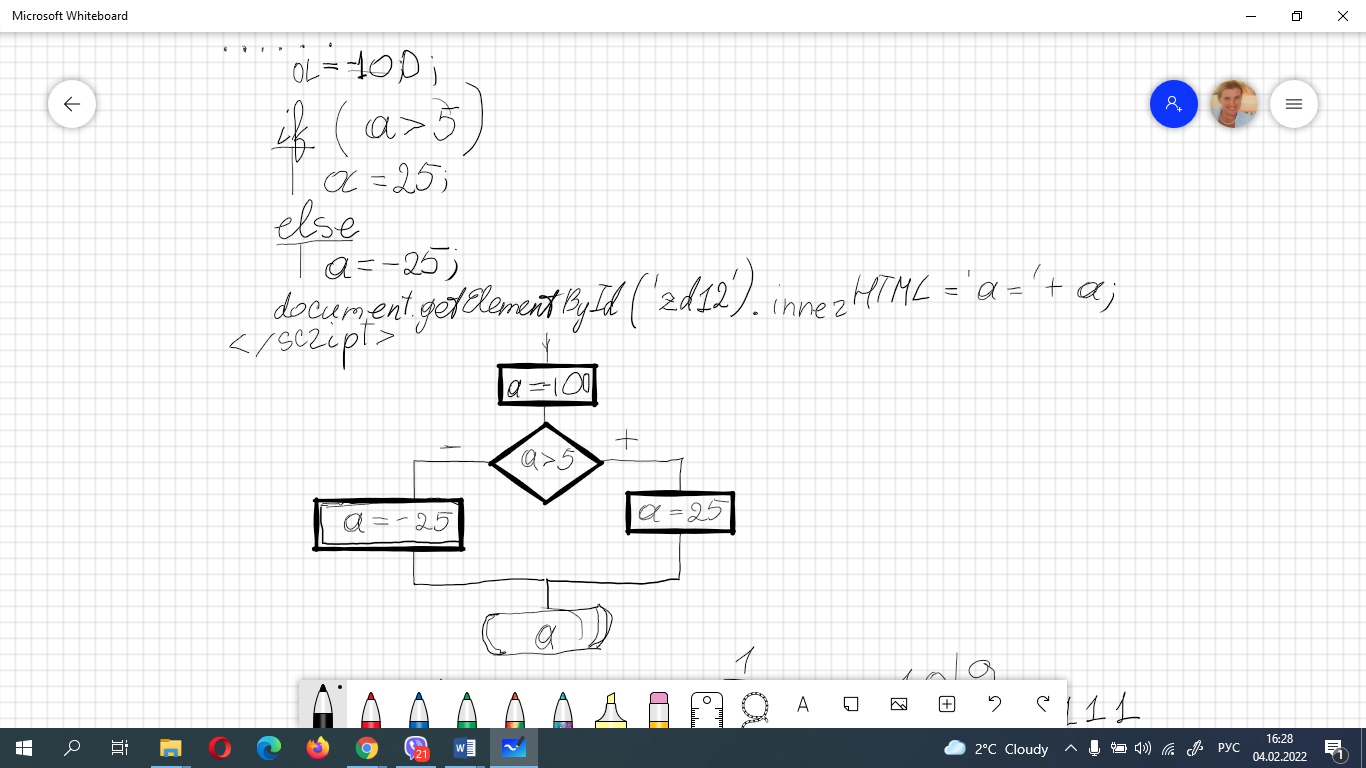 Microsoft Whiteboard
a=-100;
if (a>5)
a=25;
else
a=-25;
document.getElementById('zd12').innerHTML='a='+a;
</script>
a=-100
- a>5 +
a=-25 a=25
a
1
111
21
2°C Cloudy
РУС
16:28
04.02.2022
1